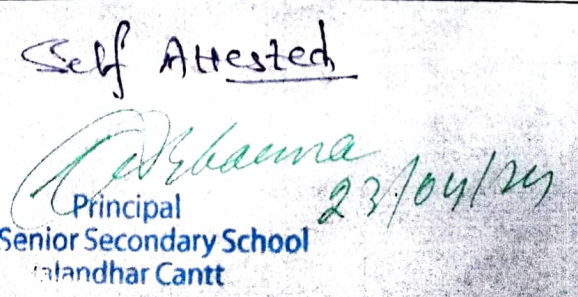 Self Attested
23/04/24
Principal
Senior Secondary School
Jalandhar Cantt